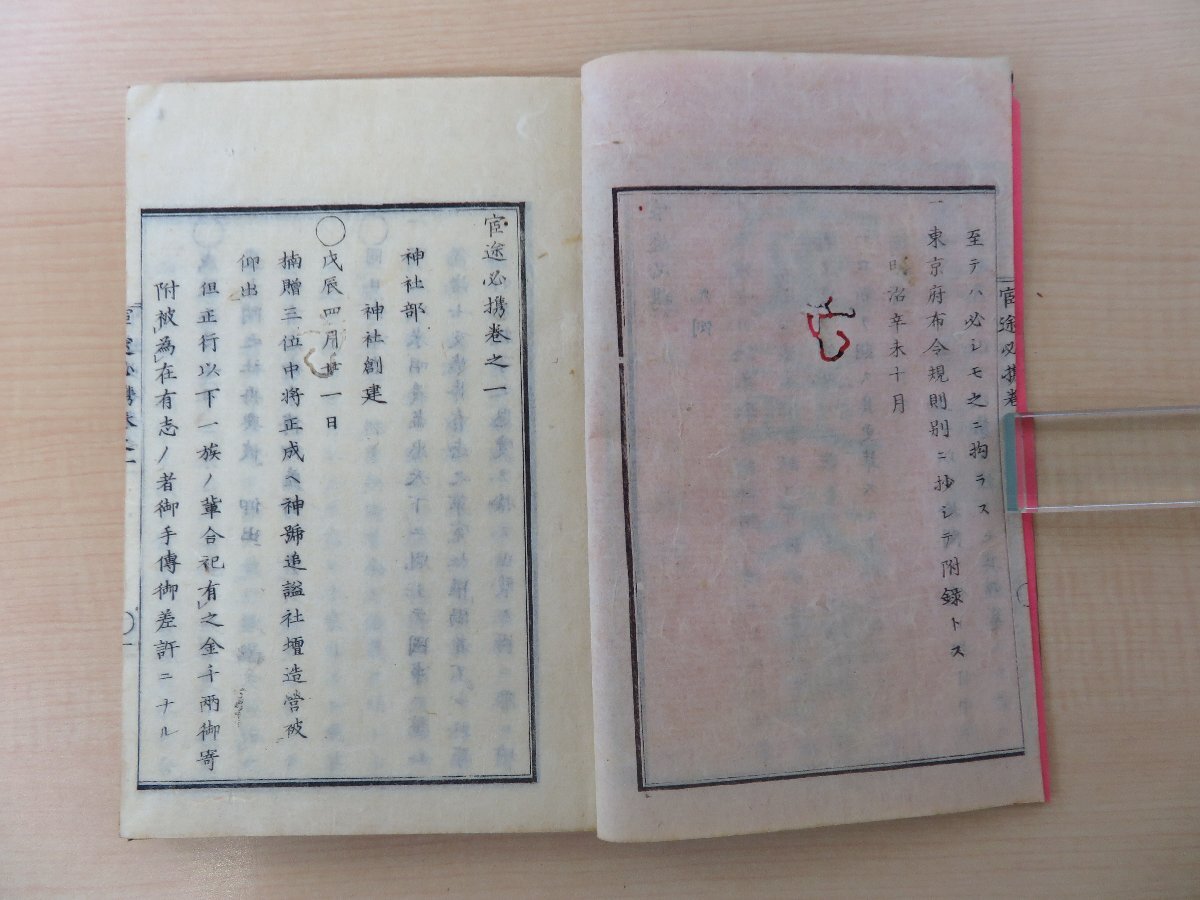 至テハ必シモ之ニ拘ラス
一東京府布令規則別ニ抄シテ附録トス
明治辛未十月
官途必携巻之一
神社部
神社創建
〇戊辰四月廿一日
楠贈三位中将正成ヘ神號追謚社壇造營被
仰出
但正行以下一族ノ輩合祀有之金千兩御寄
附被為在有志ノ者御手傳御差許ニナル